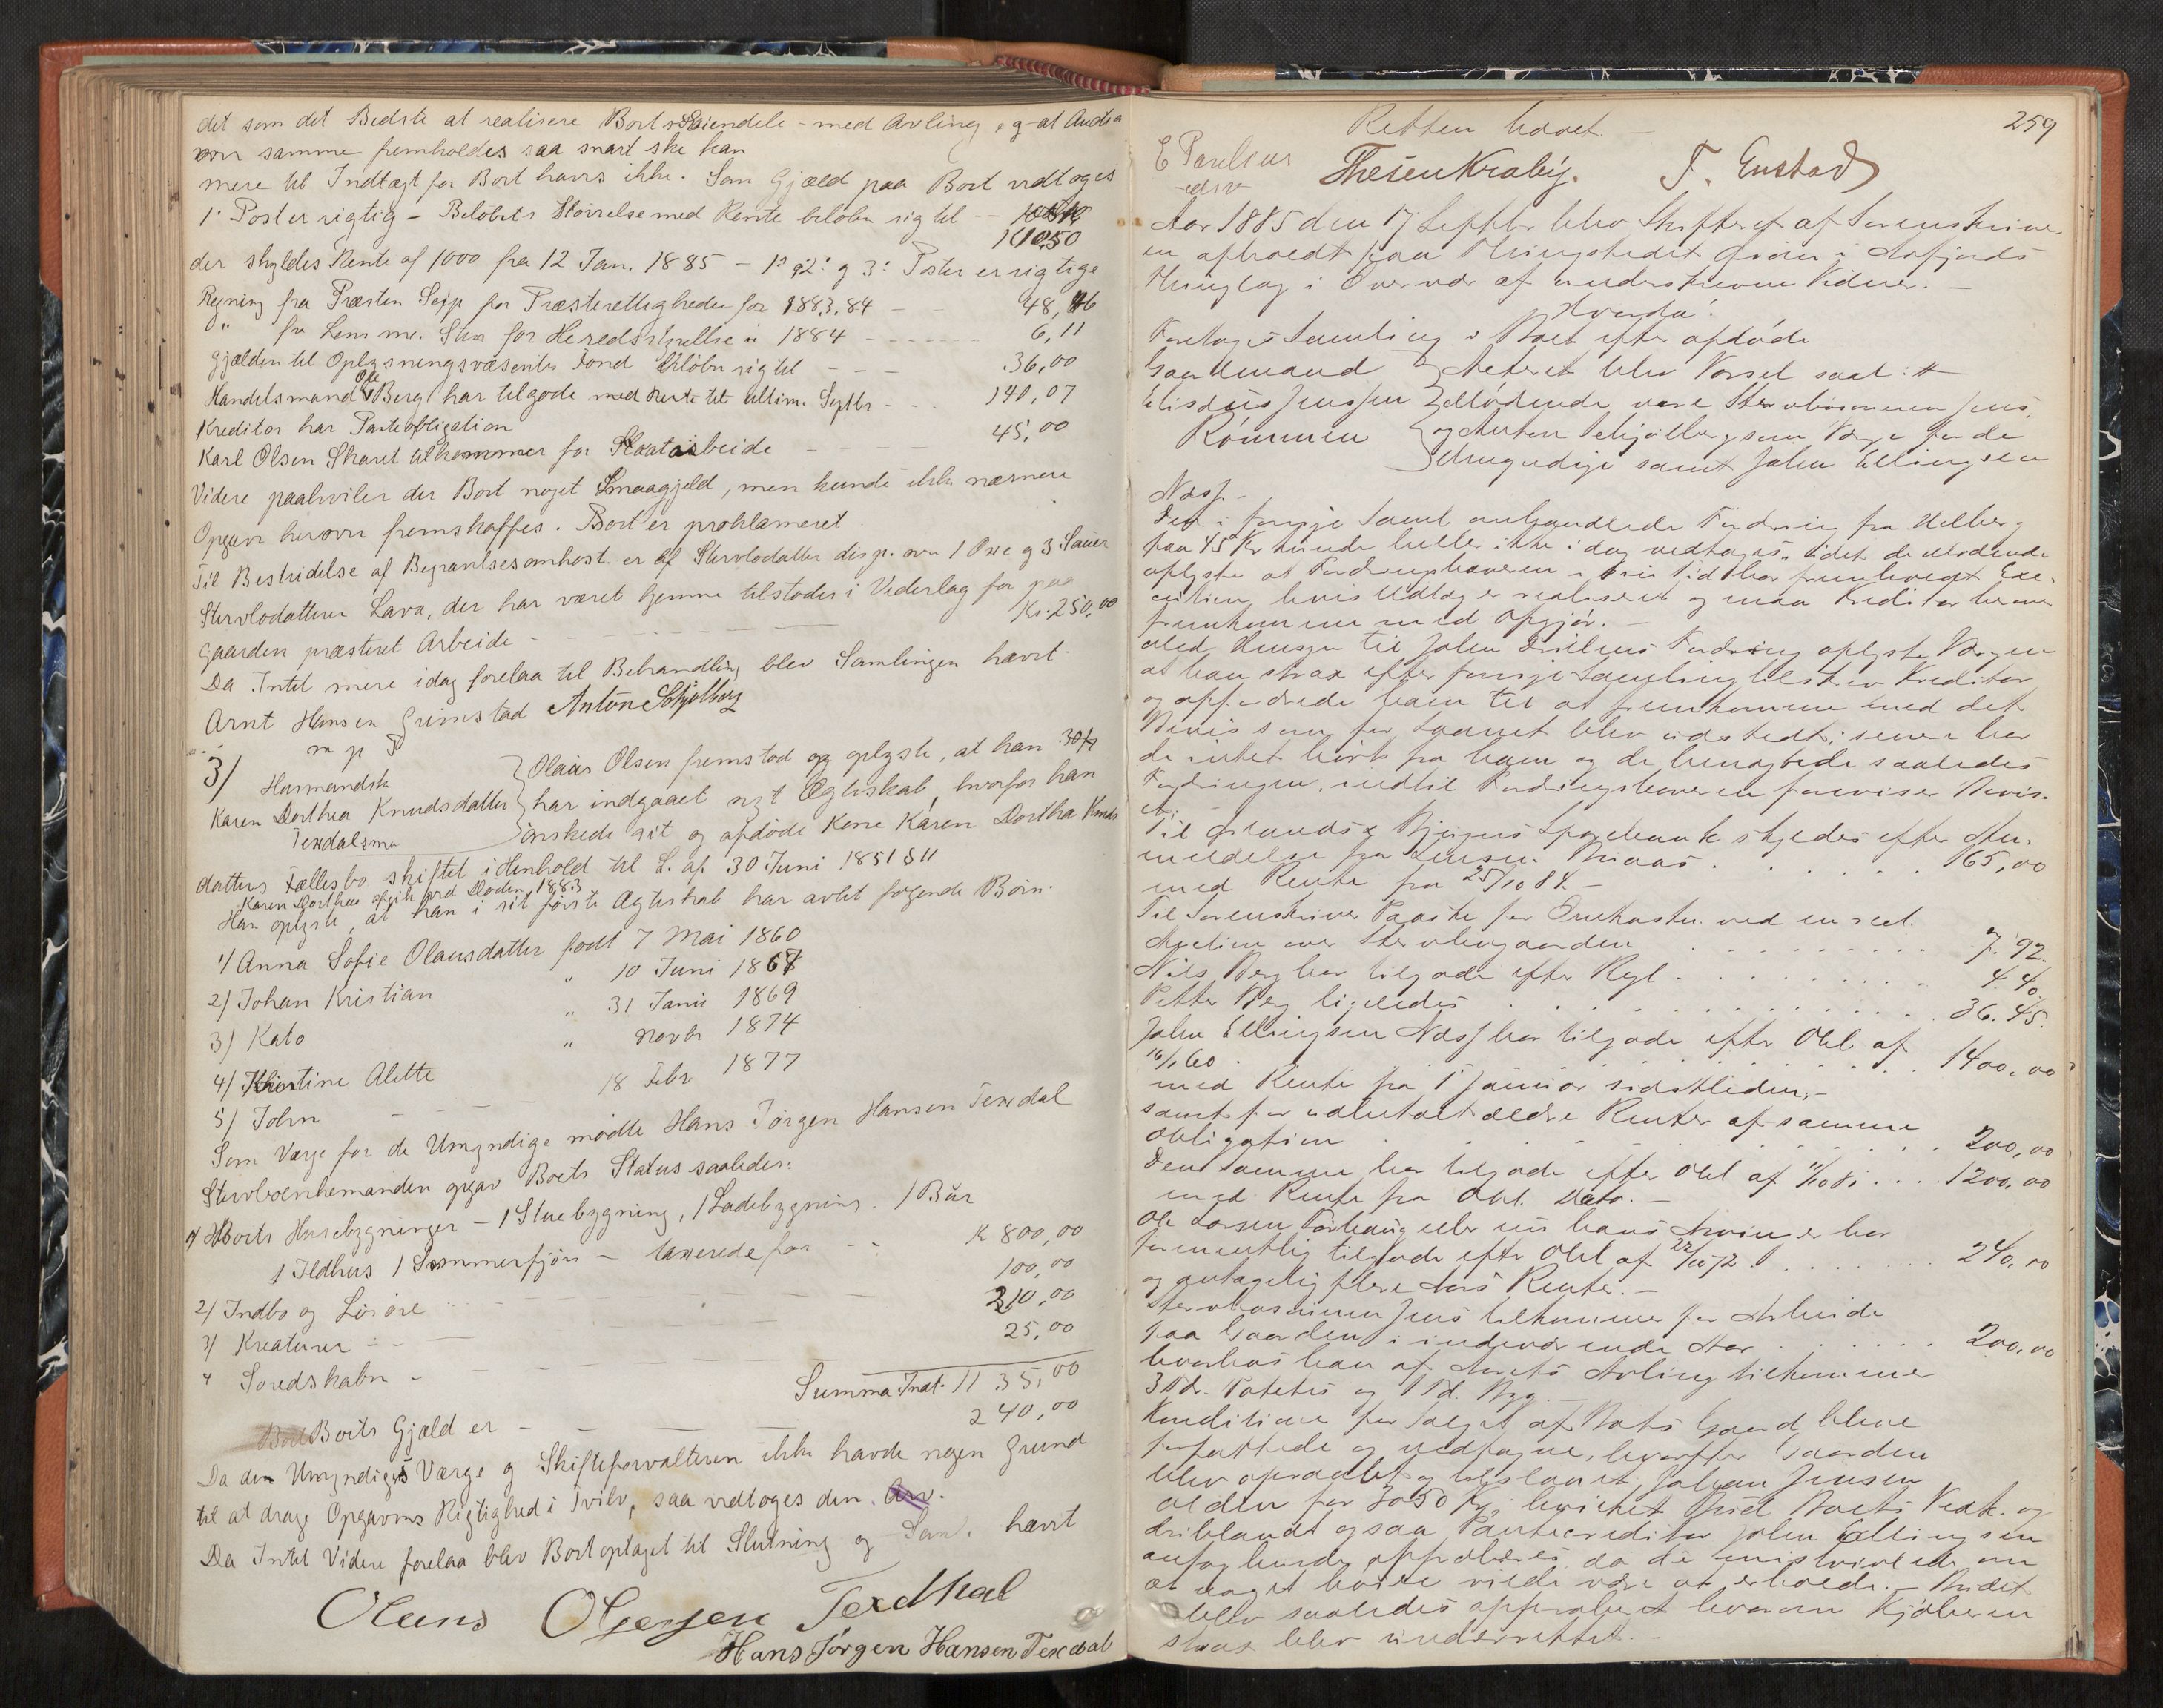 det som det Bedste at realisere Boets Eiendele - med Avling, og at Auction
over samme fremholdes saa snart ske kan
mere til Indtægt for Boet haves ikke. Som Gjæld paa Boet vedtoges
1º Poster rigtig - Beløbets Størrelse med Rente beløber sig til --
1010,50
der skyldes Rente af 1000 fra 12 Jan. 1885 - 1º 2º og 3º Poster er rigtige
Regning fra Præsten Seip for Præsterettigheder for 1883.84 - - 48,46
" fra Lensm. for Heredsskyllse i 1884 - - - - 6,11
Gjælden til Oplysningsvæsenets Fond beløber sig til - - - 36,00
Handelsmand Ole Berg har tilgode med Rente til ultimo Septbr - - - 141,07
Kreditor har Panteobligation
Karl Olsen Skaret tilkommer for Slaatarbeide - - - - 45,00
Videre paahviler der Boet noget Smaagjeld, men kunde ikke nærmere
Opgave herover fremskaffes. Boet er proklameret
Til Bestridelse af Begravelsesomkost. er af Stervbodatter disp. over 1 Oxe og 3 Sauer
Stervbodatteren Lava, der har været hjemme tilstodes i Vederlag for paa
Gaarden præsteret Arbeide - - - - Kr. 250,00
Da Intet mere idag forelaa til Behandling blev Samlingen hævet
Arnt Hansen Grimstad Anton Schjølberg
m p
3/ Husmandsk
Karen Dorthea Knudsdatter
Texdalsmo
Olaus Olsen fremstod og oplyste, at han
har indgaaet nyt Ægteskab, hvorfor han
ønskede sit og afdøde Kone Karen Dorthea Knuds
datters Fællesbo skiftet i Henhold til L. af 30 Juni 1851 § 11
Karen Dorthea afgik ved Døden 1883
Han oplyste, at han i sit første Ægteskab har avlet følgende Børn.
1/ Anna Sofie Olausdatter født 7 Mai 1860
2/ Johan Kristian " 10 Juni 1867
3/ Kato " 31 Janu 1869
4/ Kristine Alette " Novbr 1874
5/ John - - - 18 Febr 1877
Som Værge for de Umyndige mødte Hans Jørgen Hansen Texdal
Stervboenkemanden opgav Boets Status saaledes:
1/ Boets Husebygninger - 1 Stuebygning, 1 Ladebygning. 1 Bur
1 Ildhus 1 Sommerfjøs - taxerede for - - K 800,00
2/ Indbo og Løsøre - - - 100,00
3/ Kreaturer - - - 210,00
4 Søredskaber - - - 25,00
Summa Indt. 1135,00
Boets Gjæld er - - - 240,00
Da den Umyndiges Værge og Skifteforvalteren ikke havde nogen Grund
til at drage Opgavens Rigtighed i Tvivl, saa vedtoges den.
Da Intet Videre forelaa blev Boet optaget til Slutning og Sam. hævet
Olaus Olsen Texdhal
Hans Jørgen Hansen Texdal
259
Retten hævet -
E Paulsen
edsv
Thesen Kraby. T. Enstad
Aar 1885 den 17 Septbr blev Skifteret af Sorenskrive-
ren afholdt paa Thingstedet i Aafjords
Thinglag i Overvær af underskrevne Vidner. -
Hvorda:
Foretoges Samling i Boet efter afdøde
Gaardmand
Elisæus Jenssen
Rømmen
Møderet blev Varsel saat:
Mødende vare Stervbosønnen Jens
og Anton Schjølberg som Værge for de
Umyndige samt John Ellingsen
Næss -
Den i forrige Saml. omhandlede Fordring fra Helberg
paa 45 Kr kunde heller ikke i dag vedtages, idet de Mødende
oplyste at Fordringshaveren i sin Tid har fremhævet Exe-
cution, hvis Udlæg er realiseret og maa Kreditor herover
fremkomme med Opgjør. -
Med Hensyn til John Fordring oplyste Værgen
at han strax efter forrige Samling tilskrev Kreditor
og opfordrede ham til at fremkomme med det
Bevis som for Laanet blev udstedt; senere har
de intet hørt fra ham og de benægtede saaledes
Fordringen, indtil Fordringshaveren foreviser Bevis.
et.
Til Ørlands & Bjugns Sparebank skyldes efter An-
meldelse fra Lensm. . . . . 165,00
med Rente fra 25/10 84. -
Til Sorenskriver Paaske for Omkostn. ved en red.
Auction over Stervbogaarden . . . . 7.92.
Nils Berg har tilgode efter Regl. . . . . 4.40
Petter Berg ligeledes . . . . 36.45.
John Ellingsen Næss har tilgode efter Obl. af
16/1 60 . . . . 1400.00
med Rente fra 1 Januar sidstleden, -
samt for udbetalt ældre Renter af samme
Obligation . . . . 200,00
Den samme har tilgode efter Obl af 11/10 81 . . . . 1200,00
med Rente fra Obl. Dato. -
Ole Larsen eller nu hans Arvinger har
formentlig tilgode efter Obl af 22/10 72 . . . . 240,00
og antagelig flere Aars Renter. -
Stervbosønnen Jens tilkommer for Arbeide
paa Gaarden i indeværende Aar . . . . 200,00
hvorhos han af Aarets Avling tilkommer
3 Tdr. Poteter og 1 Td. Byg
Konditioner for Salget af Boets Gaard bleve
forfattede og vedtagne, hvorefter Gaarden
blev opraabt og tilslaaet Johan Jensen
for 3050 Kr; hvilket Bud Boets Vedk. og
deriblandt ogsaa Pantecreditor John Ellingsen
antog burde approberes, da de mistvivlede om
at noget høiere vilde være at erholde. - Budet
blev saaledes approberet hvorom Kjøberen
strax blev underrettet. -